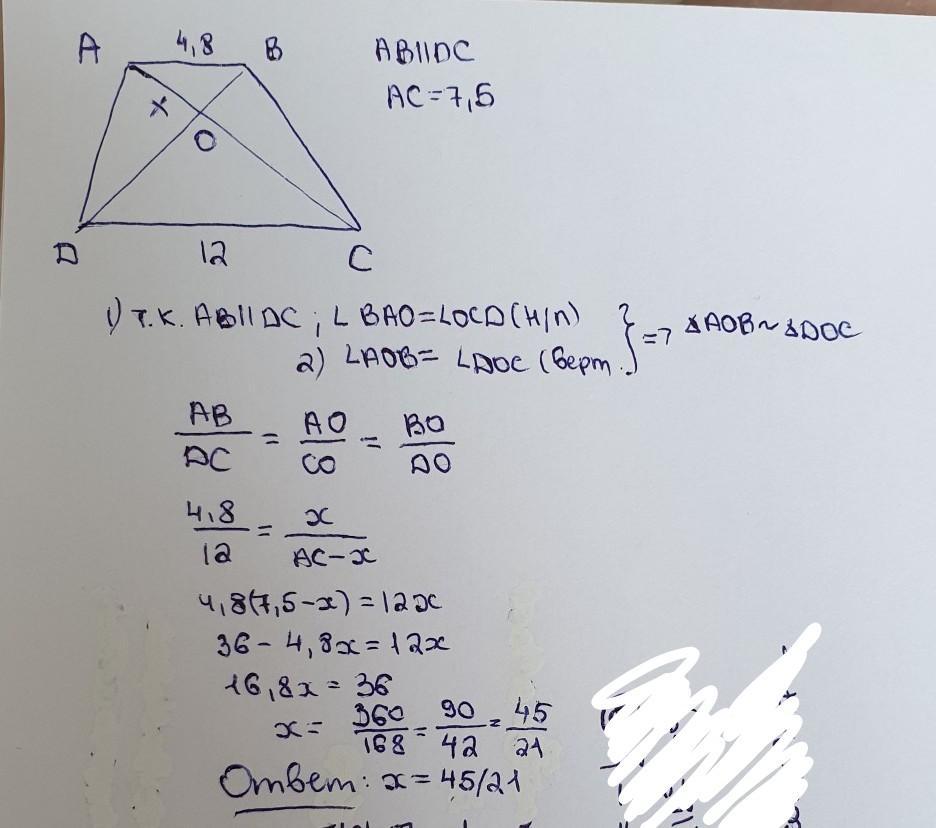 A 4,8 B
AB||DC
AC=7,5
x
O
D 12 C
1) т.к. AB||DC; ∠BAO=∠OCD(н/л)
2) ∠AOB= ∠DOC (верт.
} => ΔAOB~ΔDOC
AB/DC = AO/CO = BO/DO
4,8/12 = x/AC-x
4,8(7,5-x)=12x
36-4,8x=12x
16,8x=36
x= 360/168 = 90/42 = 45/21
Ответ: x=45/21